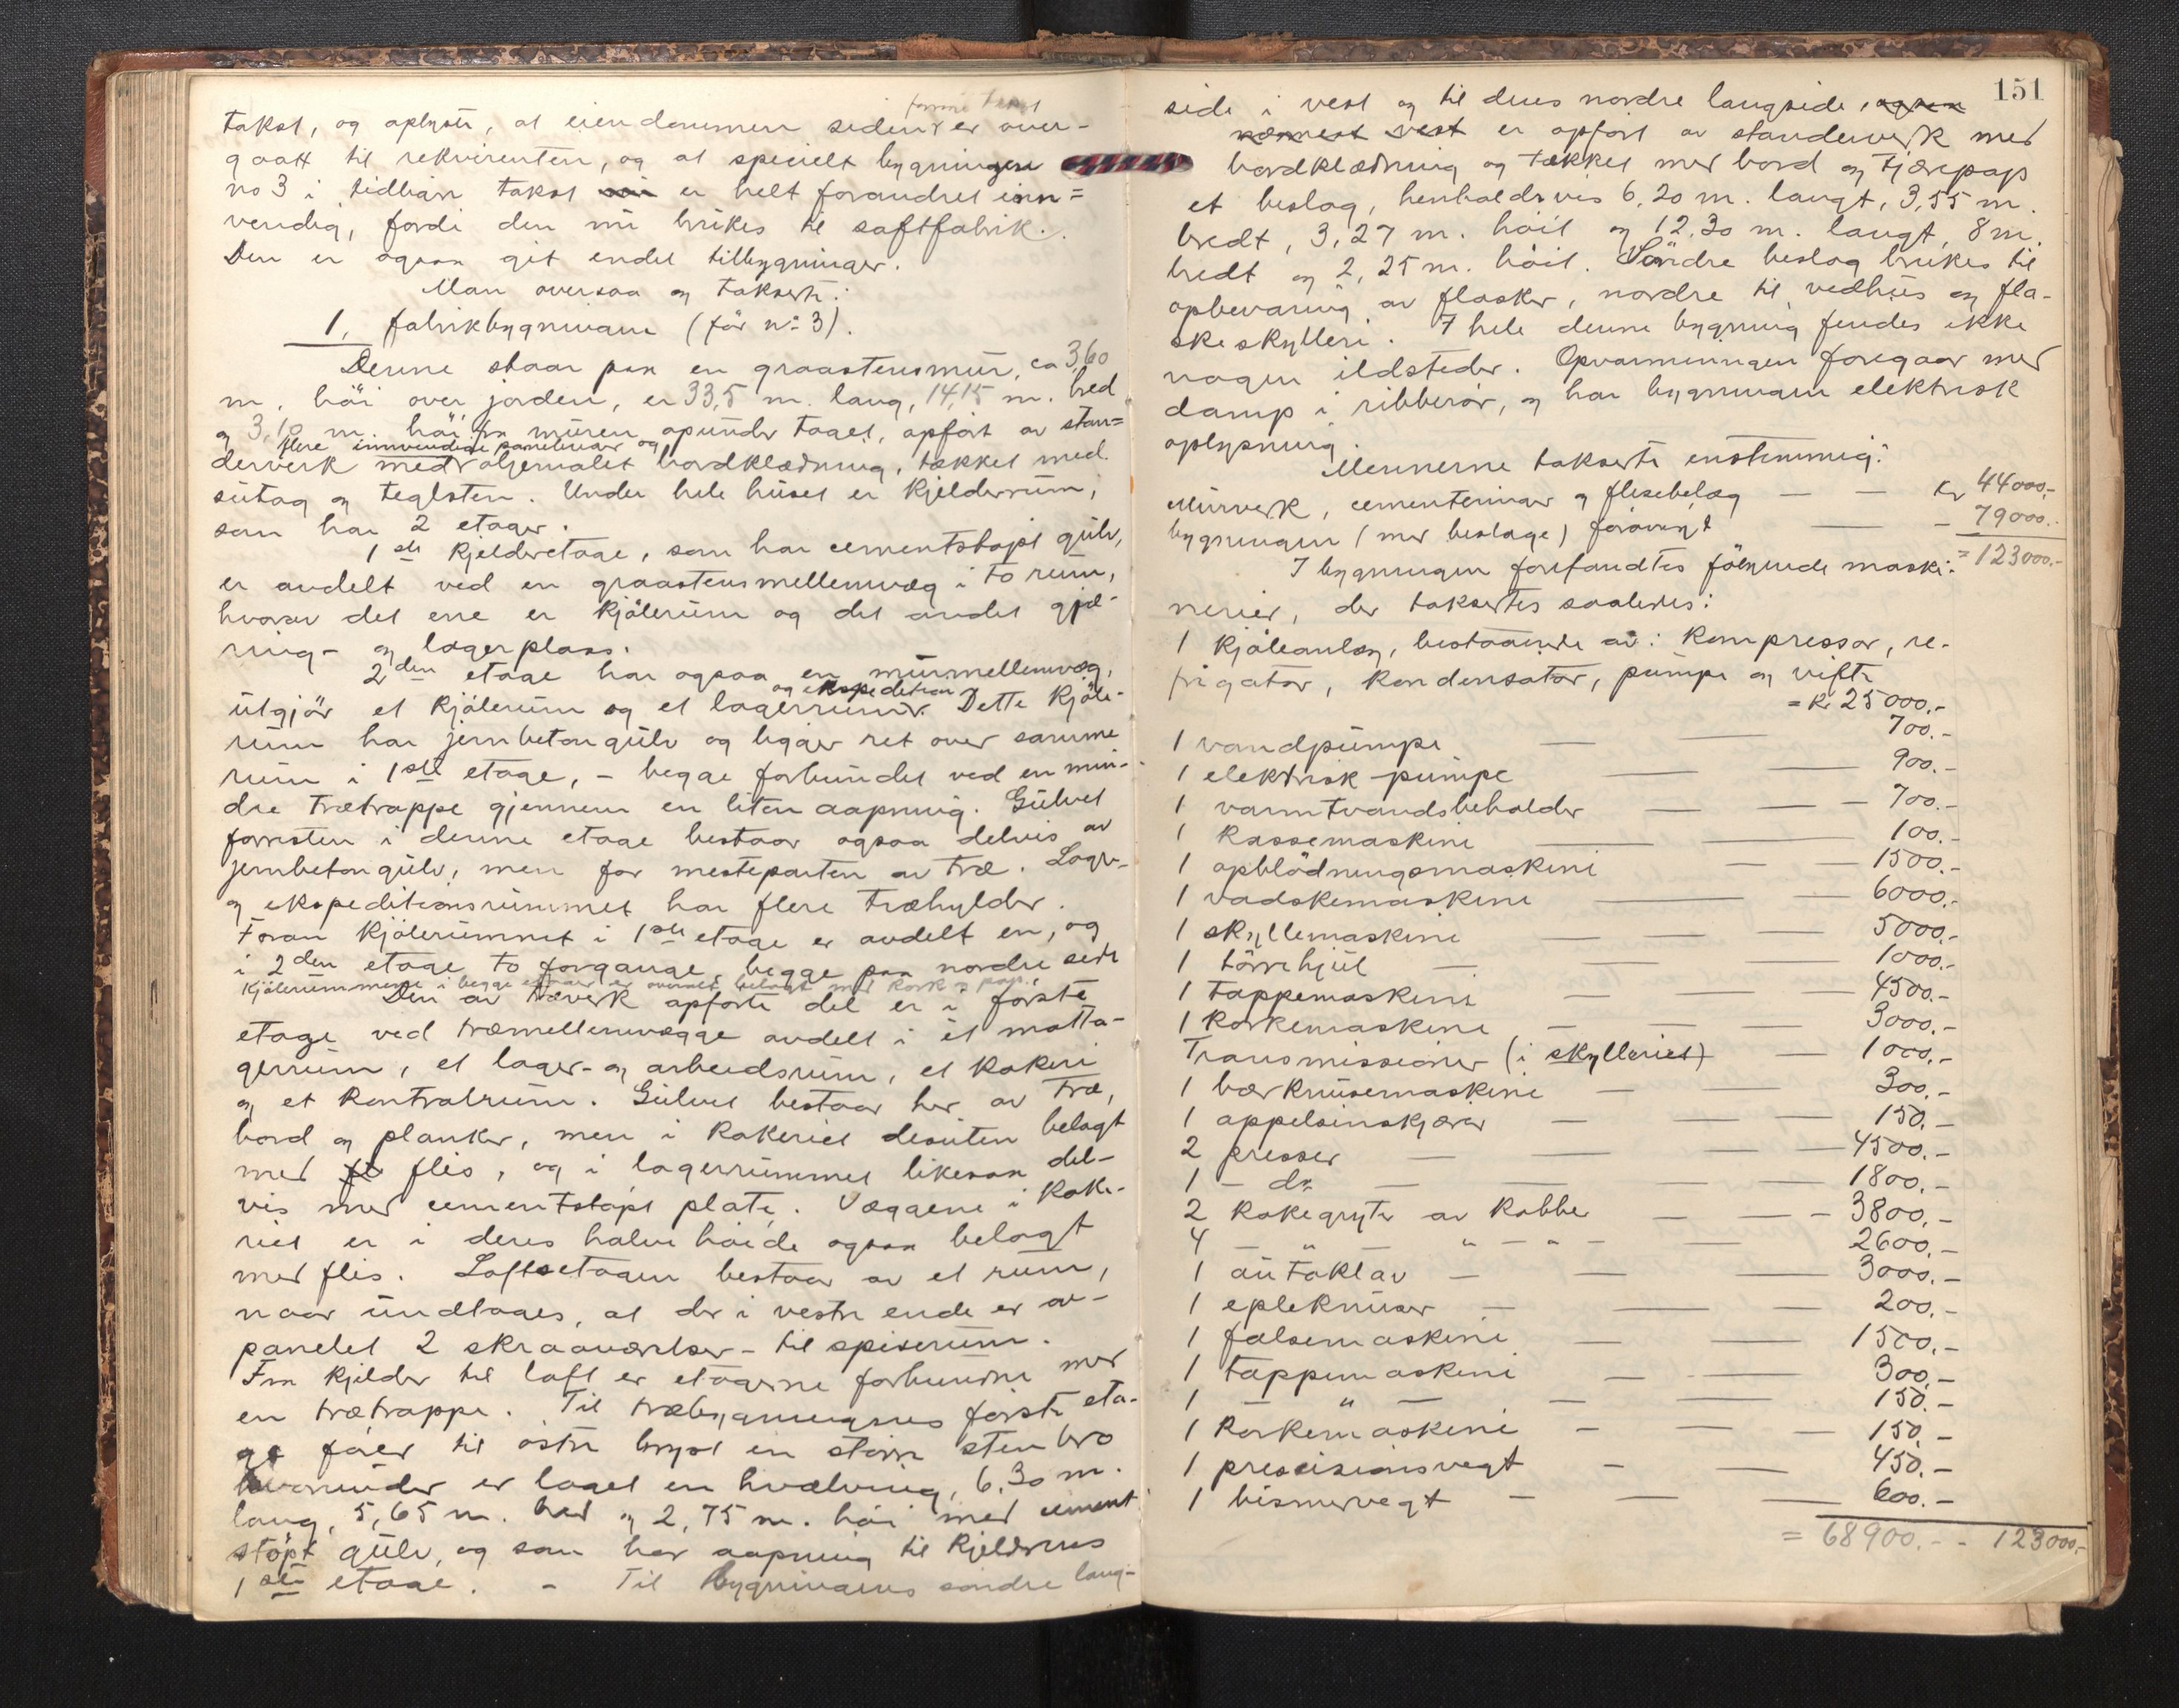 forrige takst
takst, og oplyste, at eiendommen siden er over-
gaatt til rekvirenten, og at specielt bygningen
no 3 i tidligere takst er helt forandret inn=
vendig, fordi den nu brukes til saftfabrik.
Den er ogsaa git endel tilbygninger.
Man oversaa og takserte:
1, fabrikbygningen (før no 3).
Denne staar paa en graastensmur, ca 3,60
m. høi over jorden, er 33,5 m. lang, 14,15 m. bred
og 3,10 m. høi fra muren opunder taget, opført av stan=
flere innvendige panelinger og
derverk med oljemalet bordklædning, tækket med
sutag og teglsten. Under hele huset er kjelderrum,
som har 2 etager.
1ste kjelderetage, som har cementstøpt gulv,
er avdelt ved en graastensmellemvæg i to rum,
hvorav det ene er kjølerum og det andet gjæ-
ring- og lagerplass.
2den etage har ogsaa en murmellemvæg,
og ekspedition
utgjør et kjølerum og et lagerrum. Dette kjøle-
rum har jernbetongulv og ligger ret over samme
rum i 1ste etage, - begge forbundet ved en min-
dre trætrappe gjennem en liten aapning. Gulvet
forresten i denne etage bestaar ogsaa delvis av
jernbetongulv, men for mesteparten av træ. Lager-
og ekspeditionsrummet har flere træhylder.
Foran kjølerummet i 1ste etage er avdelt en, og
i 2den etage to forgange, begge paa nordre side
Kjølerummene i begge etager er overalt belagt med kork & papp.
Den av træverk opførte del er i første
etage ved træmellemvægge avdelt i et motta-
gerrum, et lager- og arbeidsrum, et kokeri
og et kontrolrum. Gulvet bestaar her av træ,
bord og planker, men i kokeriet desuten belagt
med fl flis, og i lagerrummet likesaa del-
vis med cementstøpt plate. Væggene i koke-
riet er i deres halve høide ogsaa belagt
med flis. Loftsetagen bestaar av et rum,
naar undtages, at der i vestre ende er av-
panelet 2 skraaværelser - til spiserum.
Fra kjelder til loft er etagerne forbundne med
en trætrappe. Til træbygningens første eta-
ge fører til østre bryst en større stenbro
hvorunder er laget en hvælving, 6,30 m.
lang, 5,65 m. bred og 2,75 m. høi med cement
støpt gulv, og som har aapning til kjelderens
1ste etage. - Til bygningens søndre lang-
151
side i vest og til dens nordre langside, ogsaa
nærmest vest er opført av standerverk med
bordklædning og tækket med bord og tjærepap
et beslag, henholdsvis 6,20 m. langt, 3,55 m.
bredt, 3,27 m. høit og 12,30 m. langt, 8 m.
bredt og 2,25 m. høit. Søndre beslag brukes til
opbevaring av flasker, nordre til vedhus og fla-
skeskylleri. I hele denne bygning findes ikke
nogen ildsteder. Opvarmningen foregaar med
damp i ribberør, og har bygningen elektrisk
oplysning.
Mennerne takserte enstemmig:
Murverk, cementeringer og flisebelæg — — Kr 44000.-
bygningen (med beslage) forøvrigt — - 79000.-
I bygningen forefandtes følgende maski- = 123000.-
nerier, der takseres saaledes:
1 kjøleanlæg, bestaaende av: kompressor, re-
frigator, kondensator, pumpe og vifte
= Kr 25000.-
1 vandpumpe — — 700.-
1 elektrisk pumpe — — 900.-
1 varmtvandsbeholder — — — 700.-
1 kassemaskine — — — 100.-
1 opblødningsmaskine — — 1500.-
1 vadskemaskine — — 6000.-
1 skyllemaskine — — — 5000.-
1 tørrehjul — — — 1000.-
1 tappemaskine — — — 4500.-
1 korkemaskine — — — 3000.-
Transmissioner (i skylleriet) — 1000.-
1 bærknusemaskine — — 300.-
1 appelsinskjærer — — — 150.-
2 presser — — — 4500.-
1 - do — — — 1800.-
2 kokegryter av kobber — — - 3800.-
4 — " — " — " — — 2600.-
1 autoklav — — — 3000.-
1 epleknuser — — — 200.-
1 falsemaskine — — — 1500.-
1 tappemaskine — — 300.-
1 — " — — — 150.-
1 korkemaskine — — — 150.-
1 præcisionsvegt — — 450.-
1 bismervegt — — — 600.-
= 68900.- - 123000.-